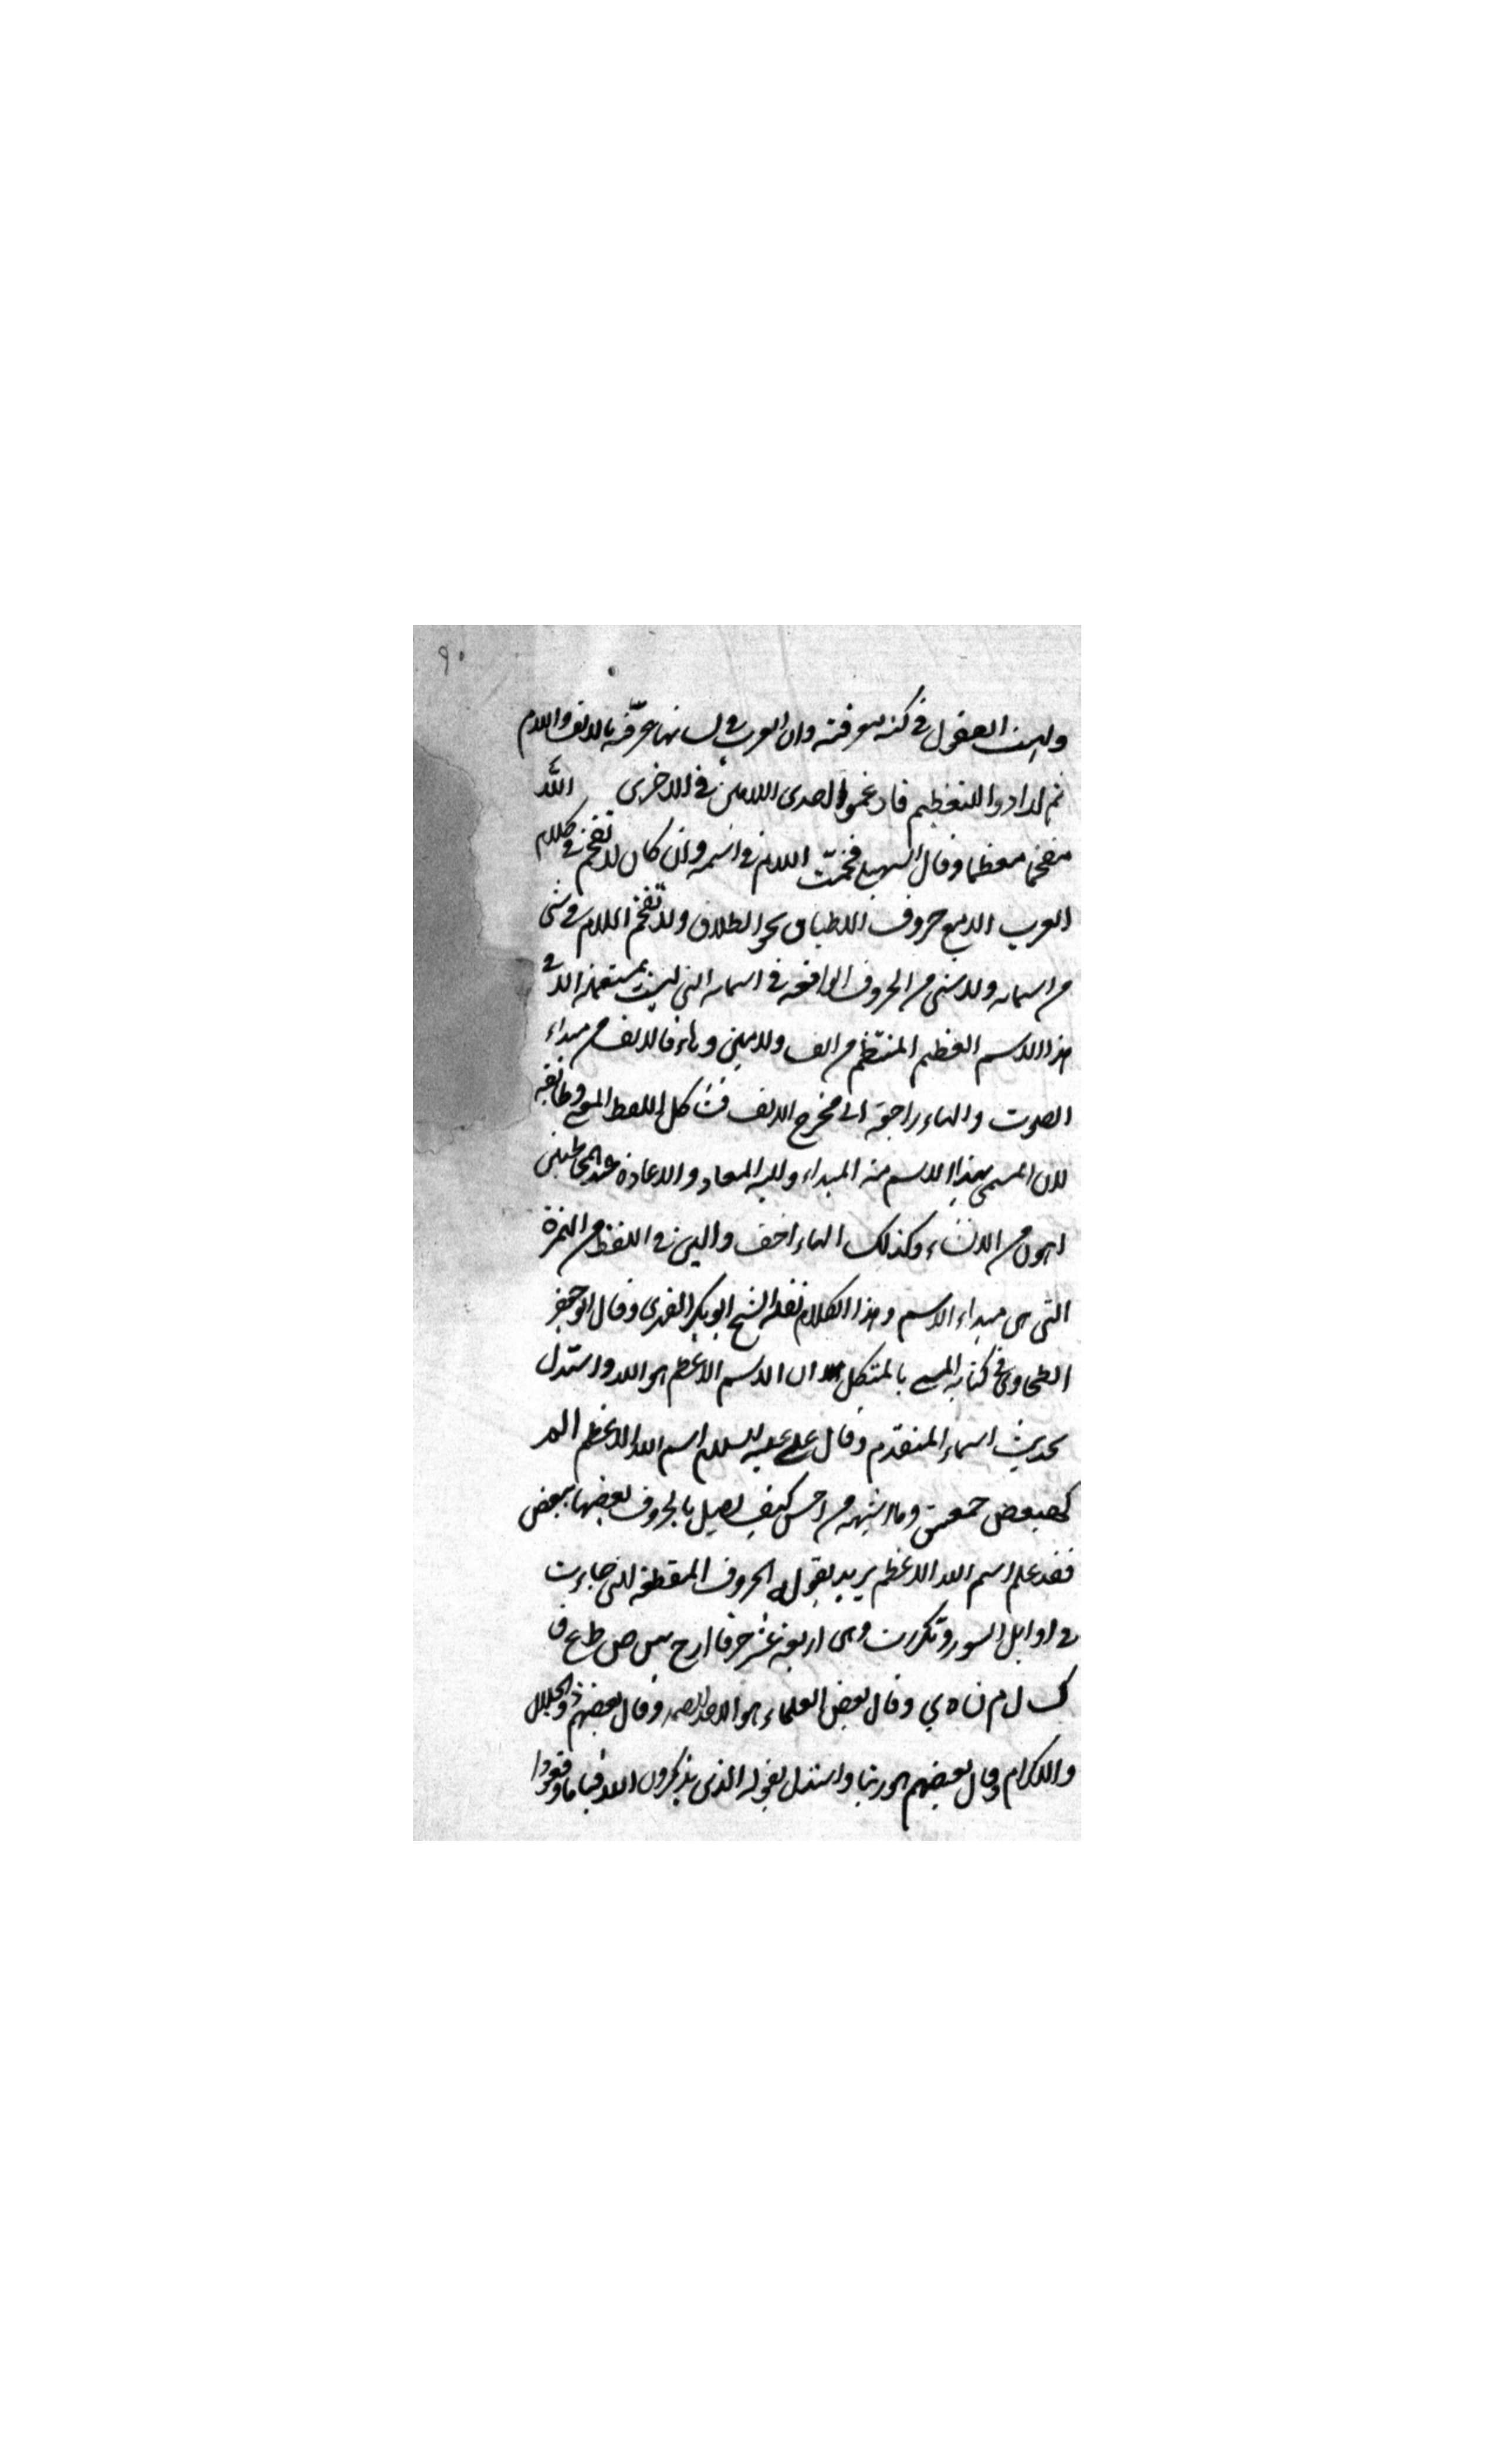 ٩٠
وليست العقول في كنه معرفته وان العرب في لسانها عرّفته بالالف واللام
ثم ارادوا التعظيم فادغموا احدى اللامين في الاخرى الله
مفخما معظما وقال السهيلي فخمت اللام في اسمه وان كان لا تفخم في كلام
العرب الا مع حروف الاطباق نحو الطلاق ولا تفخم اللام في شي
من اسمائه ولا شي من الحروف الواقعة في اسمائه التي ليست بمستعلية الا في
هذا الاسم العظيم المنتظم من الف ولامين وهاء فالالف من مبداء
الصوت والهاء راجعة الى مخرج الالف فشاكل اللفظ المعنى وطابقه
لان المسمى بهذا الاسم منه المبداء واليه المعاد والاعادة عند المخاطبين
اهون من الانشاء وكذلك الهاء اخف والين في اللفظ من الهمزة
التي هي مبداء الاسم وهذا الكلام نقله الشيخ ابو بكر الفهري وقال ابو جعفر
الطحاوي في كتابه المسمى بالمشكل ان الاسم الاعظم هو الله واستدل
بحديث اسماء المتقدم وقال علي عليه السلام اسم الله الاعظم الم
كهيعص حمعسق وما اشبهه من احسن كيف يصل بالحروف بعضها ببعض
فقد علم اسم الله الاعظم يريد بقوله الحروف المقطعة التي جاءت
في اوايل السور وتكررت وهي اربعة عشر حرفا ا ر ح س ص ط ع ق
ك ل م ن ه ي وقال بعض العلماء هو الاحد الصمد وقال بعضهم ذو الجلال
والاكرام وقال بعضهم هو ربنا واستدل بقوله الذي يذكرون الله قياما وقعودا